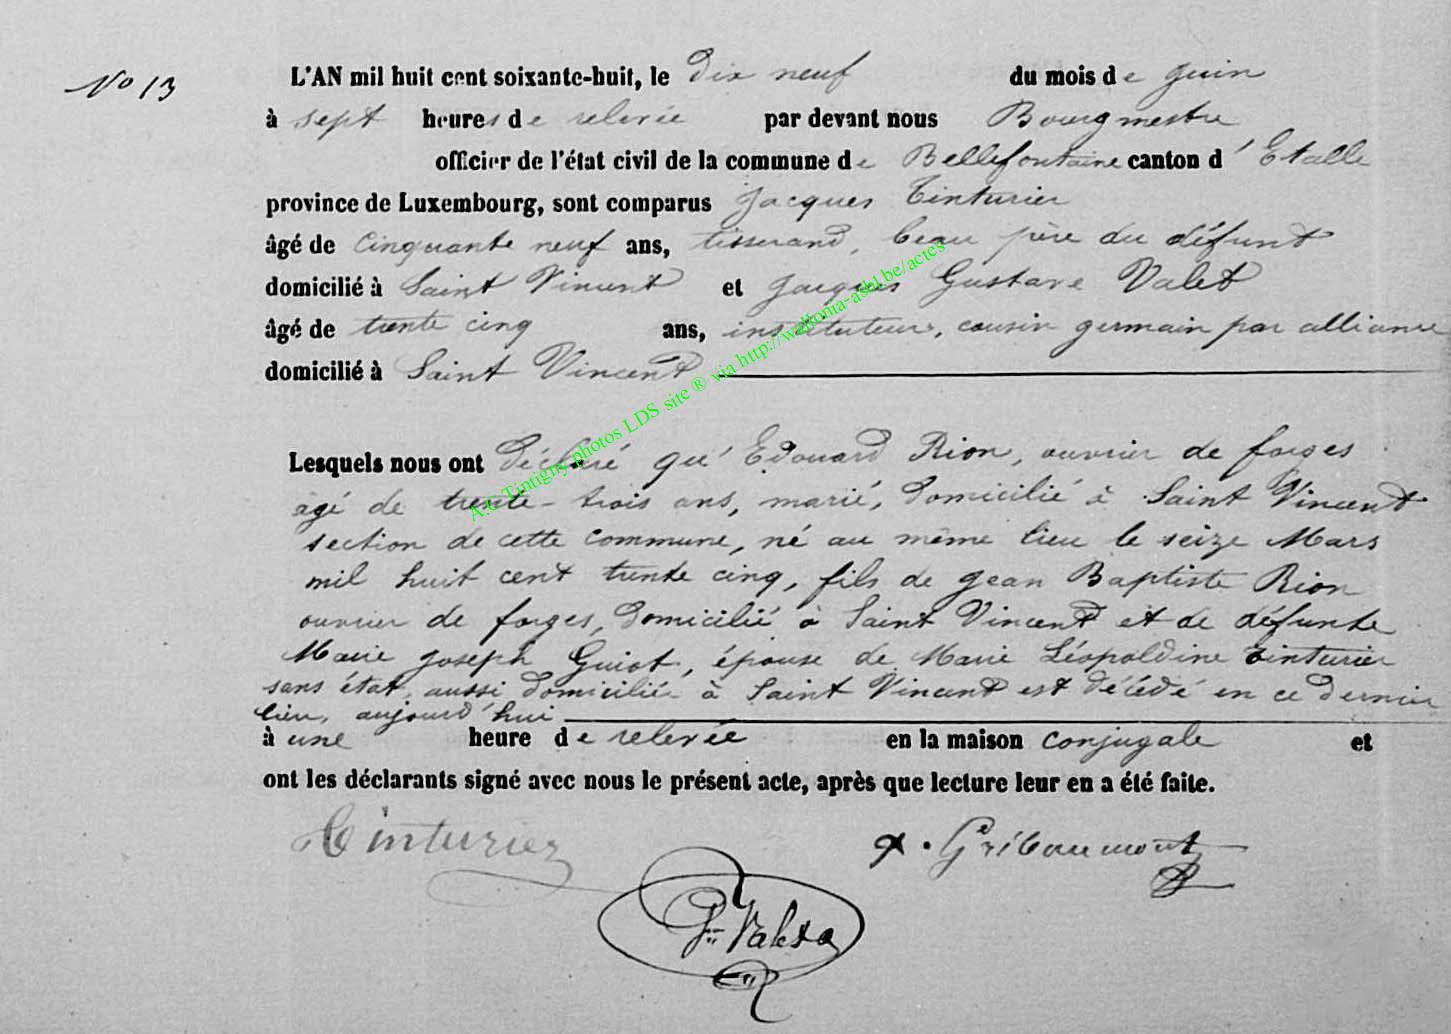 No 13
L'AN mil huit cent soixante-huit, le dix neuf du mois de juin
à sept heures de relevée par devant nous Bourgmestre
officier de l'état civil de la commune de Bellefontaine canton d'Etalle
province de Luxembourg, sont comparus Jacques Tinturier
âgé de cinquante neuf ans, tisserand, beau père du défunt
domicilié à Saint Vincent et Jacques Gustave Valet
âgé de trente cinq ans, instituteur, cousin germain par alliance
domicilié à Saint Vincent
Lesquels nous ont déclaré qu'Edouard Rion, ouvrier de forges
âgé de trente-trois ans, marié, domicilié à Saint Vincent
section de cette commune, né au même lieu le seize Mars
mil huit cent trente cinq, fils de Jean Baptiste Rion
ouvrier de forges, domicilié à Saint Vincent et de défunte
Marie Joseph Guiot, épouse de Marie Léopoldine Tinturier
sans état, aussi domiciliée à Saint Vincent est décédé en ce dernier
lieu, aujourd'hui
à une heure de relevée en la maison conjugale et
ont les déclarants signé avec nous le présent acte, après que lecture leur en a été faite.
Tinturier
Gribaumont
A.C Tintigny photos LDS site ® via http://wallonia-asbl.be/actes